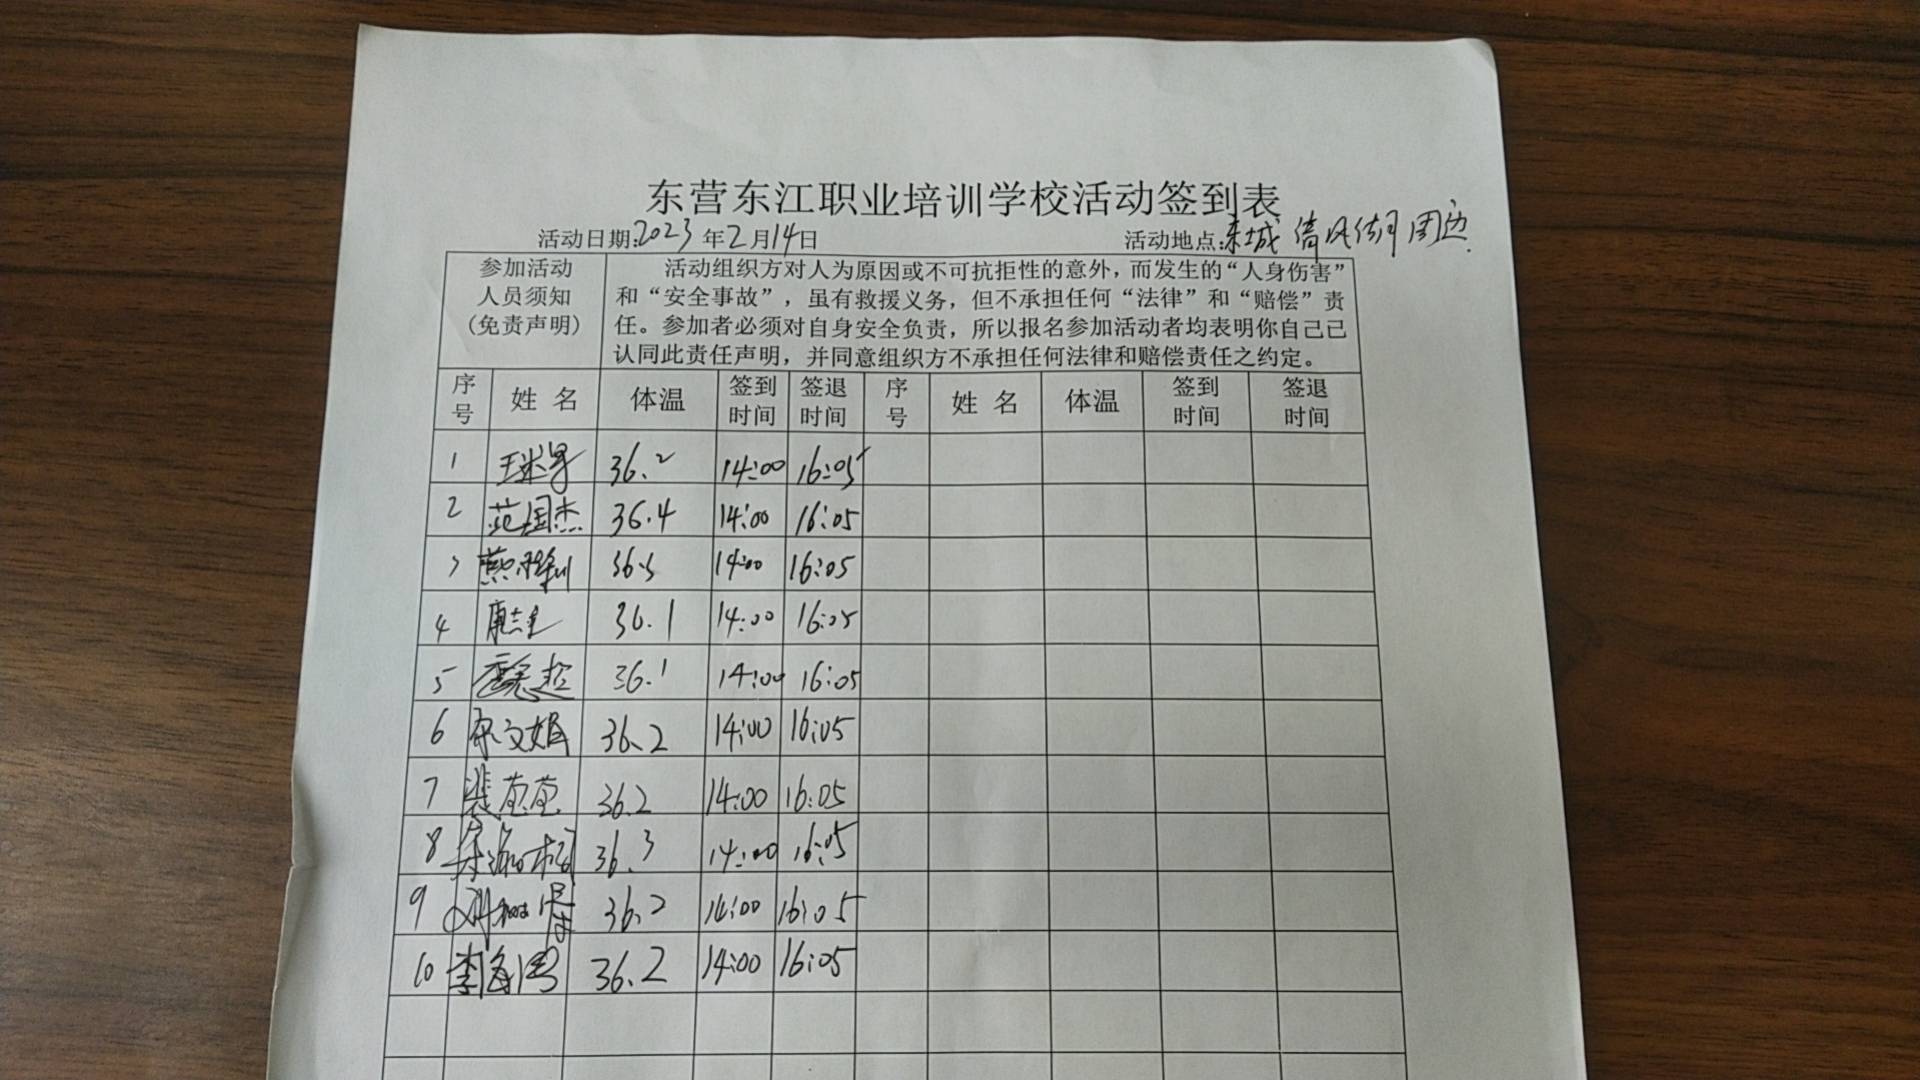 东营东江职业培训学校活动签到表
活动日期:2023年2月14日 活动地点:东城 周边
参加活动人员须知(免责声明)
活动组织方对人为原因或不可抗拒性的意外，而发生的“人身伤害”
和“安全事故”，虽有救援义务，但不承担任何“法律”和“赔偿”责
任。参加者必须对自身安全负责，所以报名参加活动者均表明你自己已
认同此责任声明，并同意组织方不承担任何法律和赔偿责任之约定。
序号 姓名 体温 签到时间 签退时间 序号 姓名 体温 签到时间 签退时间
1 36.2 14:00 16:05
2 范国杰 36.4 14:00 16:05
3 14:00 16:05
4 36.1 14:00 16:05
5 36.1 14:00 16:05
6 36.2 14:00 16:05
7 裴蕊蕊 36.2 14:00 16:05
8 36.3 14:00 16:05
9 36.2 14:00 16:05
10 36.2 14:00 16:05